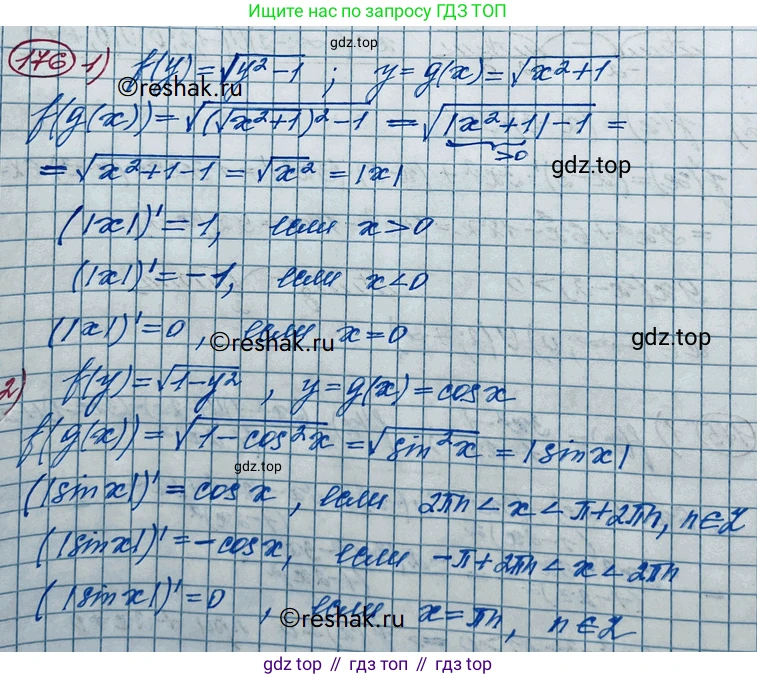 Ищите нас по запросу ГДЗ ТОП
176 1) f(y)=√(y²-1) ; y=g(x)=√(x²+1)
gdz.top
©reshak.ru
f(g(x))=√((√(x²+1))²-1) =√(|x²+1|-1) =
>0
=√(x²+1-1) =√x² =|x|
gdz.top
(|x|)'=1, если x>0
(|x|)'=-1, если x<0
(|x|)'=0, если x=0
©reshak.ru
gdz.top
2) f(y)=√(1-y²) , y=g(x)=cosx
f(g(x))=√(1-cos²x) =√(sin²x) =|sinx|
gdz.top
(|sinx|)'=cosx, если 2πn<x<π+2πn, n∈Z
(|sinx|)'=-cosx, если -π+2πn<x<2πn
(|sinx|)'=0 , если x=πn, n∈Z
©reshak.ru
gdz.top // гдз топ // gdz.top